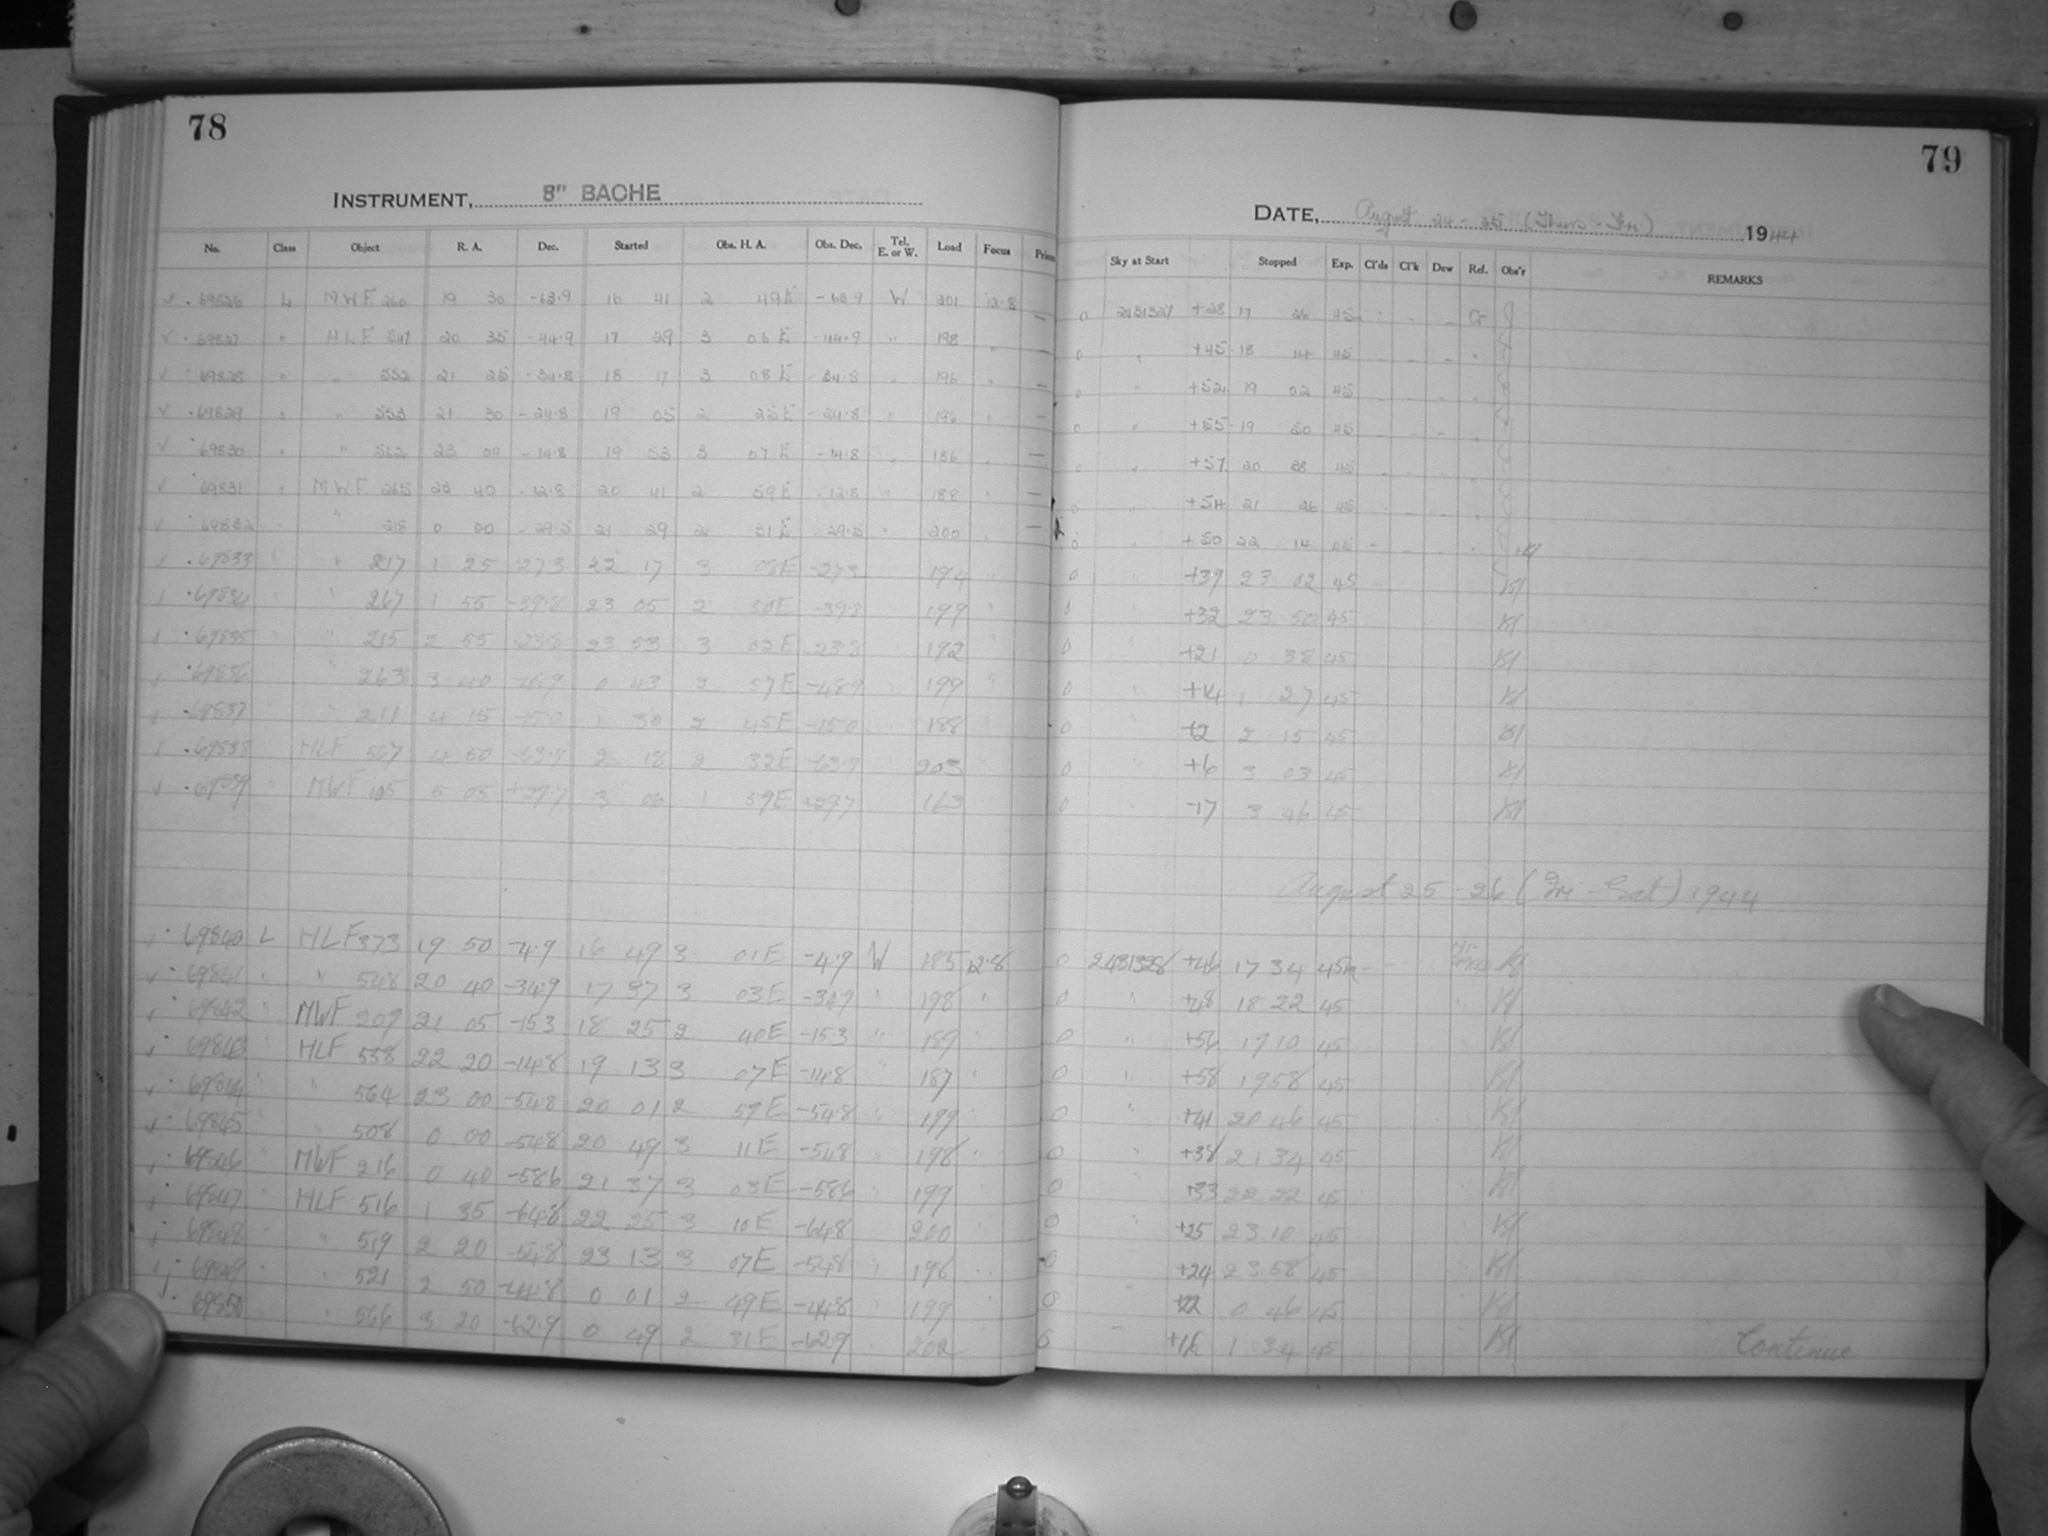 78
INSTRUMENT, 8" BACHE
No. Class Object R. A. Dec. Started Obs. H. A. Obs. Dec. Tel. E. or W. Load Focus
69826 L MWF 260 19 30 -63.9 16 41 2 49E -63.9 W 201 12.8
69827 " HLF 547 20 35 -44.9 17 29 3 06E -44.9 " 198 "
69828 " " 552 21 25 -34.8 18 17 3 08E -34.8 " 196 "
69829 " " 553 21 30 -24.8 19 05 2 25E -24.8 " 196 "
69830 " " 562 23 00 -14.8 19 53 3 07E -14.8 " 186 "
69831 " MWF 265 23 40 -12.8 20 41 2 59E -12.8 " 188 "
69832 " 218 0 00 -29.5 21 29 2 31E -29.5 " 200 "
69833 " 217 1 25 -27.3 22 17 3 08E -27.3 194
69834 " 267 1 55 -39.8 23 05 2 50E -39.8 199
69835 " 215 2 55 -23.8 23 53 3 02E -23.8 192
69836 " 263 3 40 0 43 2 57E -48.9 199
69837 " 211 4 15 -15.0 1 30 2 45E -15.0 188
69838 HLF 567 4 50 -63.9 2 18 2 32E -63.9 203
69839 MWF 5 05 +29.7 3 06 1 59E +29.7 163
69840 L HLF 373 19 50 -4.9 16 49 3 01E -4.9 W 185 12.8
69841 " " 548 20 40 -34.9 17 37 3 03E -34.9 " 198 "
69842 " MWF 209 21 05 -15.3 18 25 2 40E -15.3 " 189
69843 " HLF 558 22 20 -14.8 19 13 3 07E -14.8 " 187 "
69844 " " 564 23 00 -54.8 20 01 2 59E -54.8 " 199
69845 " " 508 0 00 -54.8 20 49 3 11E -54.8 " 198 "
69846 " MWF 216 0 40 -58.6 21 37 3 03E -58.6 " 199
69847 " HLF 516 1 35 -64.8 22 25 3 10E -64.8 200
69848 " " 519 2 20 -54.8 23 13 3 07E -54.8 " 196
69849 " " 521 2 50 -44.8 0 01 2 49E -44.8 199
69850 " 566 3 20 -62.9 0 49 2 31E -62.9 202
79
DATE, August 24-25 (Thurs-Fri) 1944
Sky at Start Stopped Exp. Cl'ds Cl'k Dew Ref. Obs'r REMARKS
0 2431327 +28 17 26 45m - - - Cr J
0 " +45 18 14 45 - - - "
0 " +52 19 02 45 - - - "
0 " +55 19 50 45 - - - "
0 " +57 20 38 45 - - - "
0 " +54 21 26 45 - - - "
0 " +50 22 14 45 - - - "
0 " +39 23 02 45
0 " +32 23 50 45
0 " +21 0 38 45
0 " +14 1 27 45
0 " +2 2 15 45
0 " +6 3 03 45
0 " -17 3 46 45
August 25-26 (Fri-Sat) 1944
0 2431328 +46 17 34 45m - -
0 " +48 18 22 45
0 " +56 19 10 45
0 " +58 19 58 45
0 " +41 20 46 45
0 " +38 21 34 45
0 " +33 22 22 45
0 " +25 23 10 45
0 +24 23 58 45
0 " +22 0 46 45
0 " +16 1 34 45
Continue